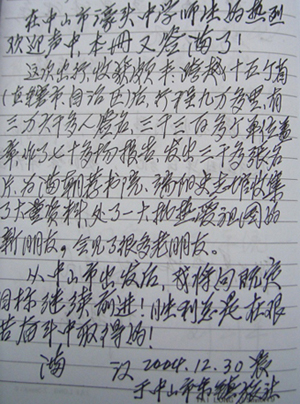 在中山市濠头中学师生的热烈
欢迎声中,本册又签满了!
这次出行,收获颇丰,跨越十五个省
(直辖市、自治区)后,行程九万多里,有
三万六千多人签名,三千三百多个单位盖
章,作了七十多场报告,发出三千多张名
片,为
了大量资料,处了一大批热爱祖国的
新朋友,会见了很多老朋友。
从中山市出发后,我将向既定
目标继续前进!胜利总是在艰
苦奋斗中取得的!
满 汉 2004.12.30 晨
于中山市